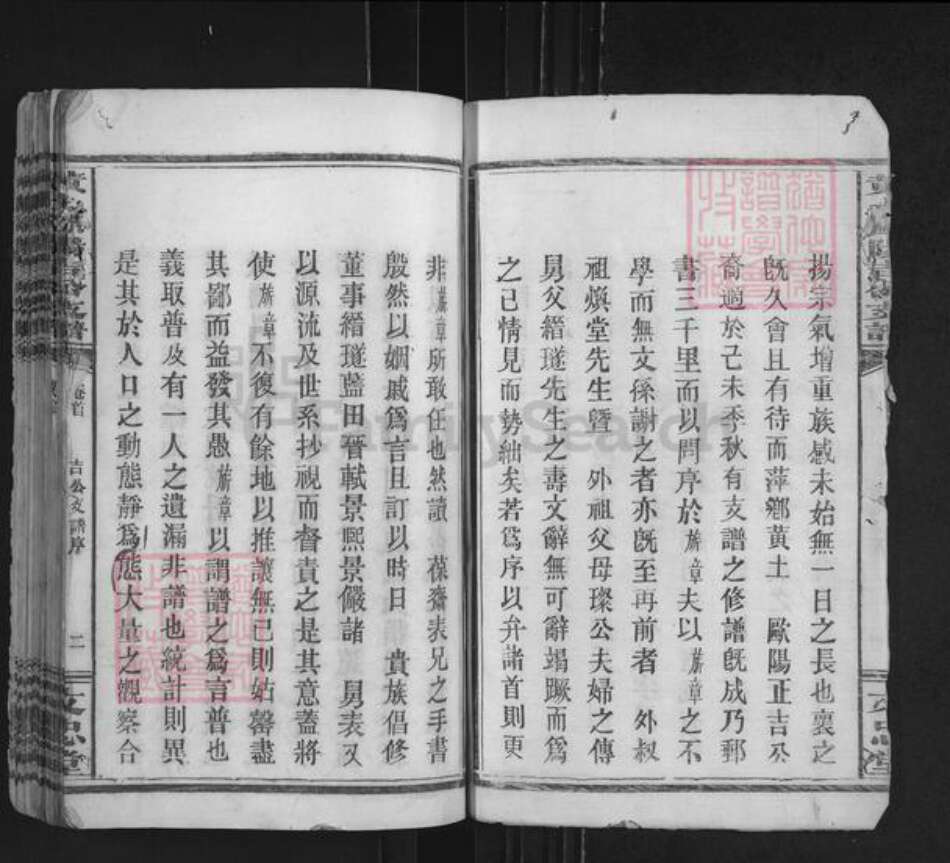 揚宗氣增重族感未始無一日之長也襄之
旣久會且有待而萍鄉黃土　歐陽正吉公
裔適於己未季秋有支譜之修譜旣成乃郵
書三千里而以問序於㫋章夫以㫋章之不
學而無文孫謝之者亦旣至再前者　外叔
祖煥堂先生曁　外祖父母璨公夫婦之傳
舅父縉璲先生之壽文辭無可辭竭蹶而爲
之已情見而勢絀矣若爲序以弁諸首則更
非㫋章所敢任也然讀　葆齋表兄之手書
殷然以姻戚爲言且訂以時日　貴族倡修
董事縉璲藍田晉軾景熙景儼諸　舅表又
以源流及世系抄視而督責之是其意蓋將
使㫋章不復有餘地以推讓無已則姑罄盡
其鄙而益發其愚㫋章以謂譜之爲言普也
義取普及有一人之遺漏非譜也統計則異
是其於人口之動態靜爲態大量之觀察合
卷首
吉公支譜序
二
FamilySearch